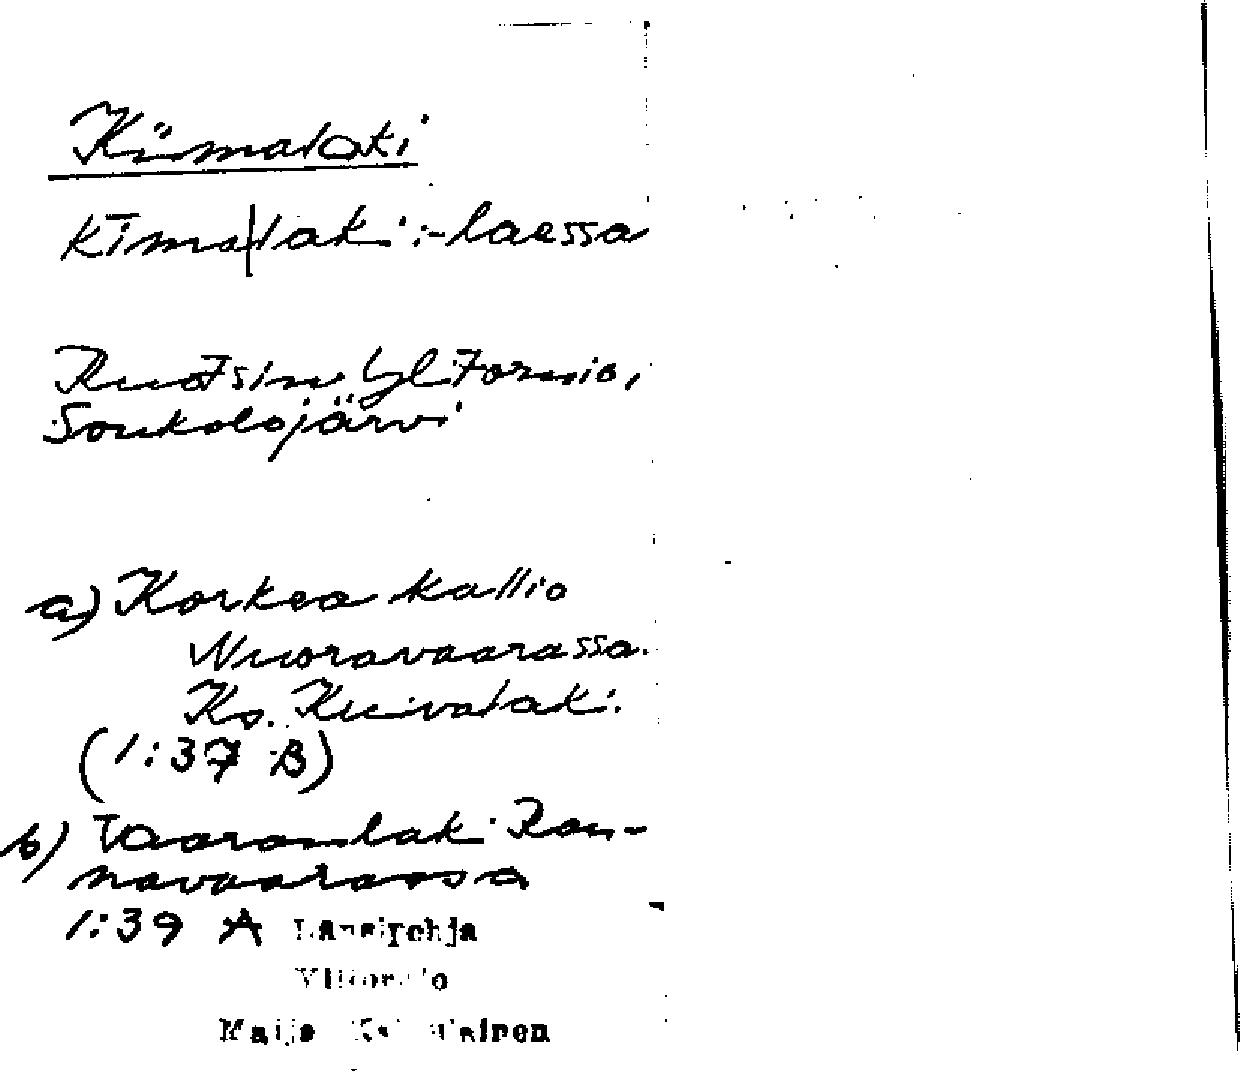 Kiimalaki
kīma|laki :-laessa
Ruotsin Ylitornio,
Soukolojärvi
a) Korkea kallio
Nuoravaarassa.
Ks. Kuivalaki.
(1:37 B)
b) Vaaranlaki Ran-
navaarassa
1:39 A Länsipohja
Ylitornio
Maija